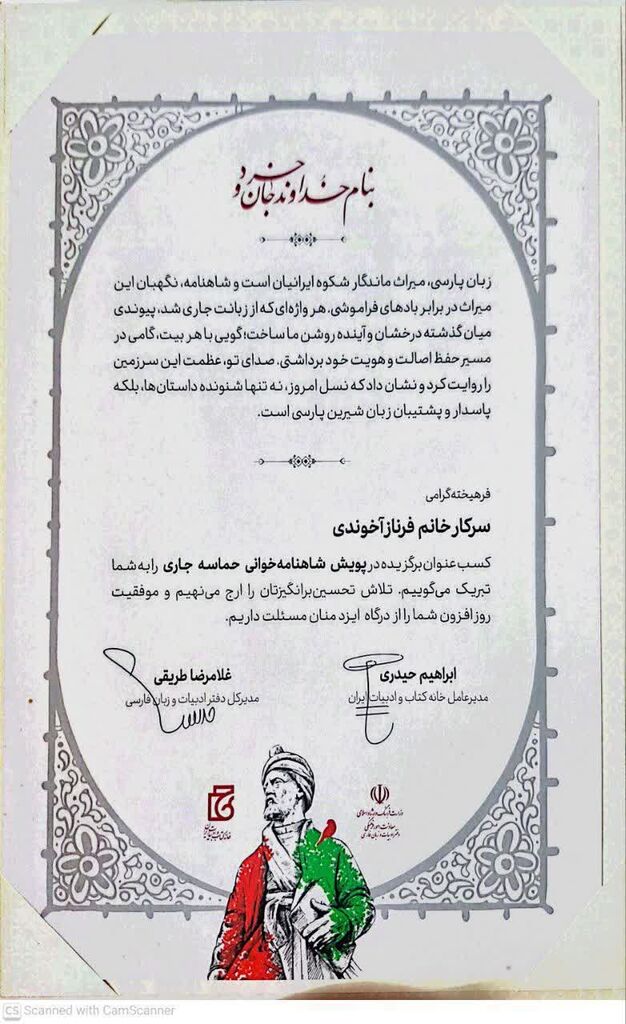 بنام خداوند جان و خرد
زبان پارسی، میراث ماندگار شکوه ایرانیان است و شاهنامه، نگهبان این
میراث در برابر بادهای فراموشی. هر واژه‌ای که از زبانت جاری شد، پیوندی
میان گذشته درخشان و آینده روشن ما ساخت؛ گویی با هر بیت، گامی در
مسیر حفظ اصالت و هویت خود برداشتی. صدای تو، عظمت این سرزمین
را روایت کرد و نشان داد که نسل امروز، نه تنها شنونده داستان‌ها، بلکه
پاسدار و پشتیبان زبان شیرین پارسی است.
فرهیخته گرامی
سرکار خانم فرناز آخوندی
کسب عنوان برگزیده در پویش شاهنامه‌خوانی حماسه جاری را به شما
تبریک می‌گوییم. تلاش تحسین‌برانگیزتان را ارج می‌نهیم و موفقیت
روزافزون شما را از درگاه ایزد منان مسئلت داریم.
ابراهیم حیدری
مدیرعامل خانه کتاب و ادبیات ایران
غلامرضا طریقی
مدیرکل دفتر ادبیات و زبان فارسی
وزارت فرهنگ و ارشاد اسلامی
معاونت امور فرهنگی
CS Scanned with CamScanner